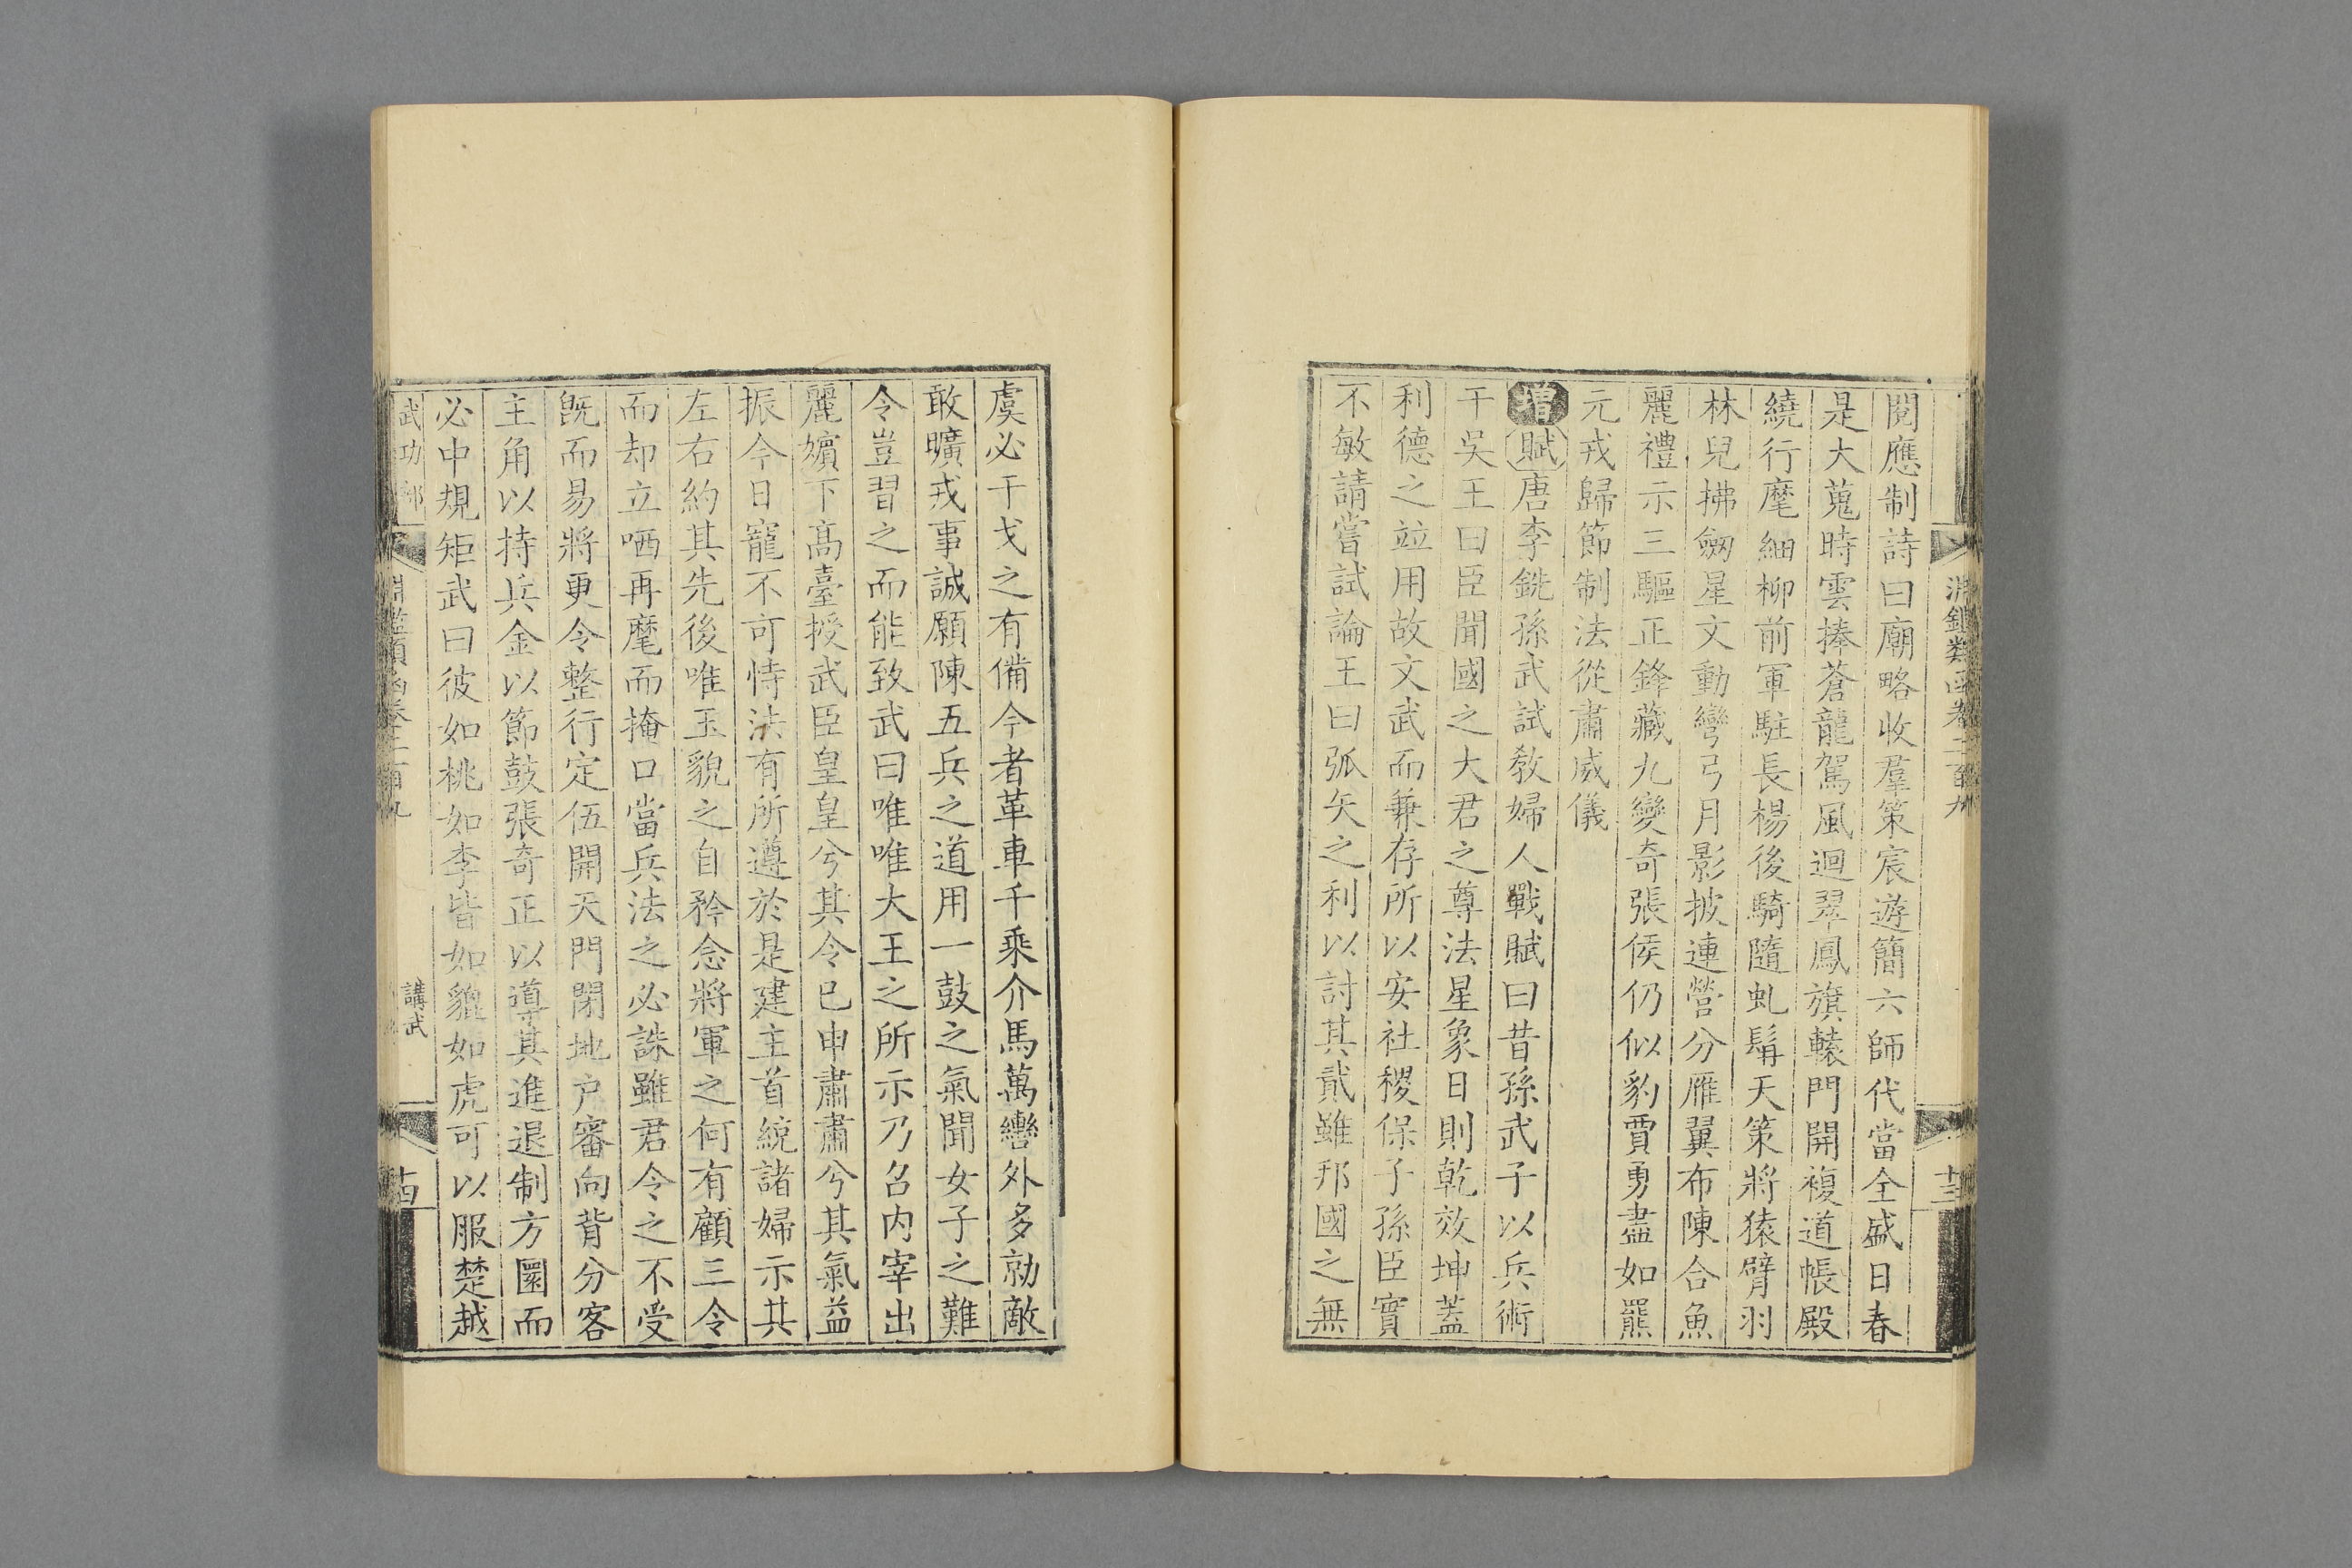 淵鑑類函卷二百九
十三
閱應制詩曰廟略收羣策宸遊簡六師代當全盛日春
是大蒐時雲捧蒼龍駕風迴翠鳳旗轅門開複道帳殿
繞行麾細柳前軍駐長楊後騎隨虬鬚天策將猿臂羽
林兒拂劒星文動彎弓月影披連營分雁翼布陳合魚
麗禮示三驅正鋒藏九變奇張侯仍似豹賈勇盡如羆
元戎歸節制法從肅威儀
增賦唐李銑孫武試敎婦人戰賦曰昔孫武子以兵術
干吳王曰臣聞國之大君之尊法星象日則乾效坤蓋
利德之竝用故文武而兼存所以安社稷保子孫臣實
不敏請嘗試論王曰弧矢之利以討其貳雖邦國之無
虞必干戈之有備今者革車千乘介馬萬轡外多勍敵
敢曠戎事誠願陳五兵之道用一鼓之氣聞女子之難
令豈習之而能致武曰唯唯大王之所示乃召内宰出
麗嬪下高臺授武臣皇皇兮其令已申肅肅兮其氣益
振今日寵不可恃法有所遵於是建主首統諸婦示其
左右約其先後唯玉貌之自矜念將軍之何有顧三令
而却立哂再麾而掩口當兵法之必誅雖君令之不受
旣而易將更令整行定伍開天門閉地戸審向背分客
主角以持兵金以節鼓張奇正以導其進退制方圓而
必中規矩武曰彼如桃如李皆如貔如虎可以服楚越
武功部
淵鑑類函卷二百九
講武
十四